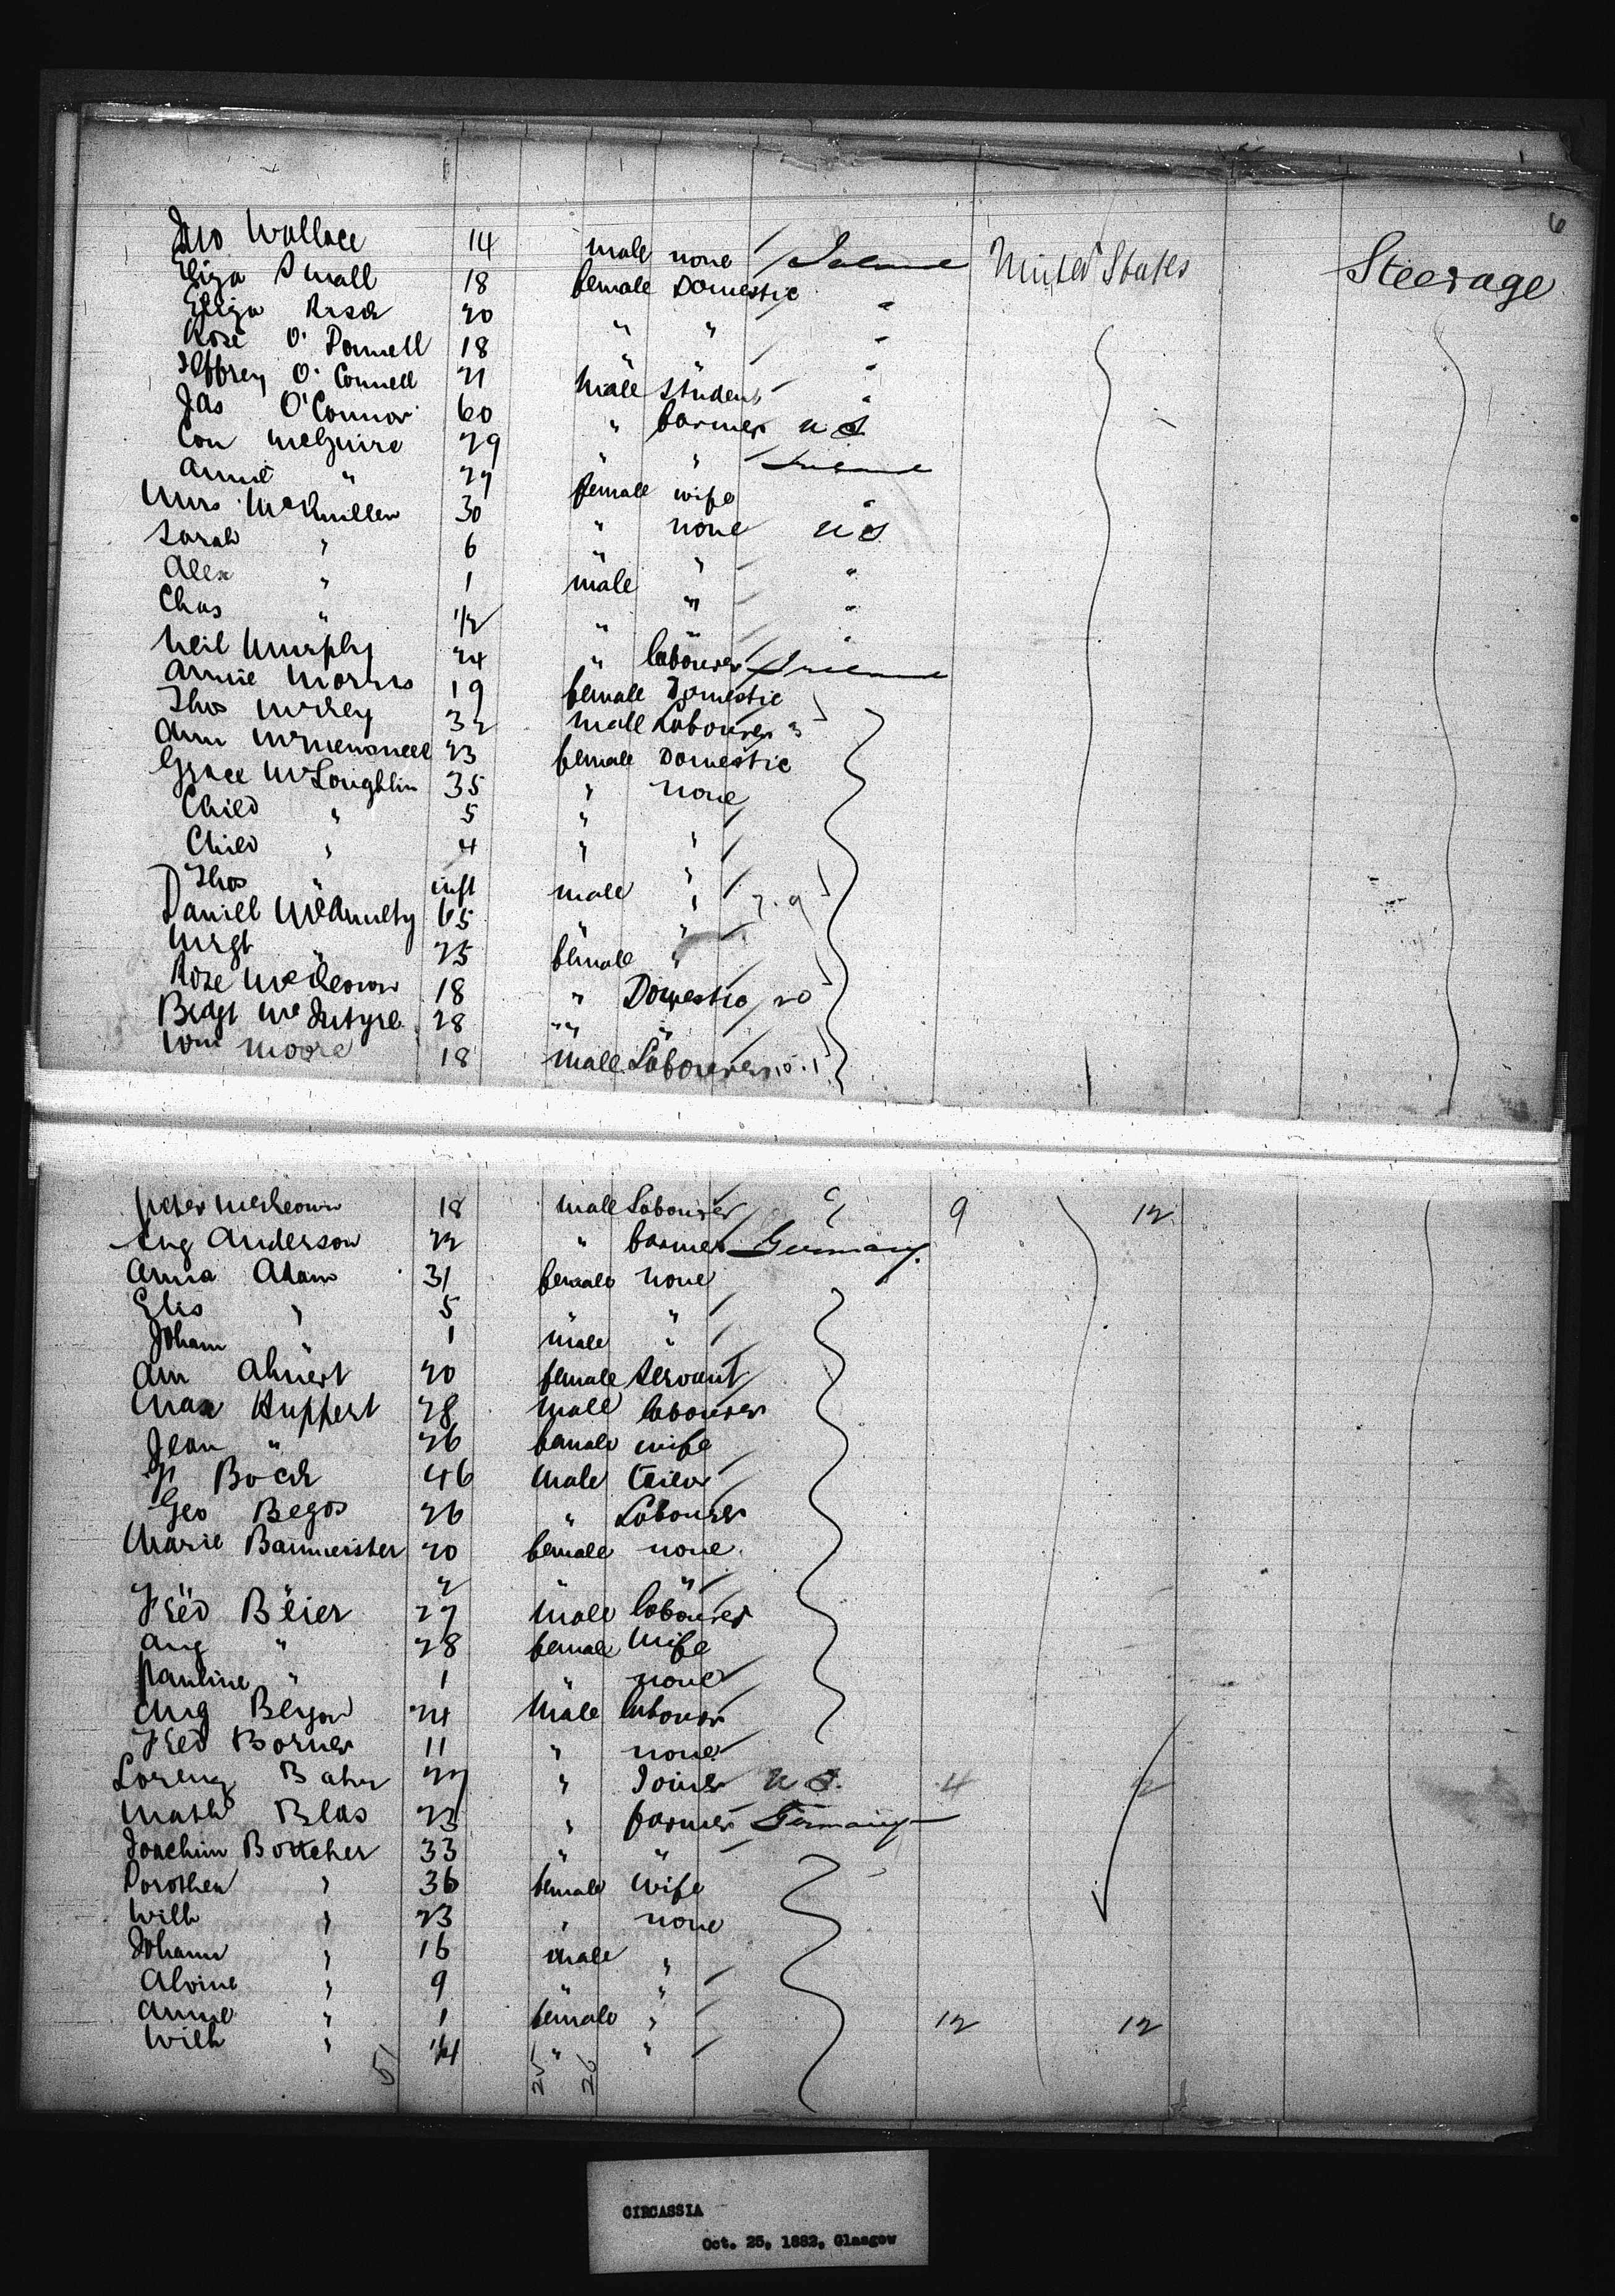 6
Jno Wallace 14 male none / Ireland United States Steerage
Eliza Small 18 female Domestic "
Eliza 20 " " "
Rose O'Donnell 18 " " "
Jeffrey O'Connell 21 male Student "
Jas O'Connor 60 " farmer U S
Con McGuire 29 " " Ireland
Annie " 27 female wife "
Mrs 30 " none U S
Sarah " 6 " " "
Alex " 1 male " "
Chas " 1/2 " " "
Neil Murphy 24 " labourer Ireland
Annie Morris 19 female Domestic
Thos 32 male Labourer "
Ann 23 female Domestic
Grace McLoughlin 35 " none
Child " 5 " "
Child " 4 " "
Thos " inft male "
Daniel McAnulty 65 " "
Mrgt " 25 female "
Rose McKeown 18 " Domestic 20
Bridgt McIntyre 28 " "
Wm Moore 18 male Labourer
Peter McKeown 18 male Labourer 9 12
Aug Anderson 22 " farmer Germany.
Anna Adam 31 female none
Elis " 5 " "
Johann " 1 male "
Am Ahnert 20 female Servant
Max Huppert 28 male labourer
Jean " 26 female wife
Bock 46 male tailor
Geo Begos 26 " Labourer
Marie Baumeister 20 female none
" " "
Fred Beier 27 male labourer
Aug " 28 female wife
Pauline " 1 " none
Aug Beyon 24 male labourer
Fred Borner 11 " none
Lorenz Bahr 27 " Joiner U S. 4 2
Math Blas 23 " farmer Germany
Joachim Bottcher 33 " "
Dorothea " 36 female wife
Wilh " 23 " none
Johann " 16 male "
Alvine " 9 " "
Anne " 1 female " 12 12
Wilh " 1/4 " "
51 25 26
CIRCASSIA
Oct. 25, 1882, Glasgow